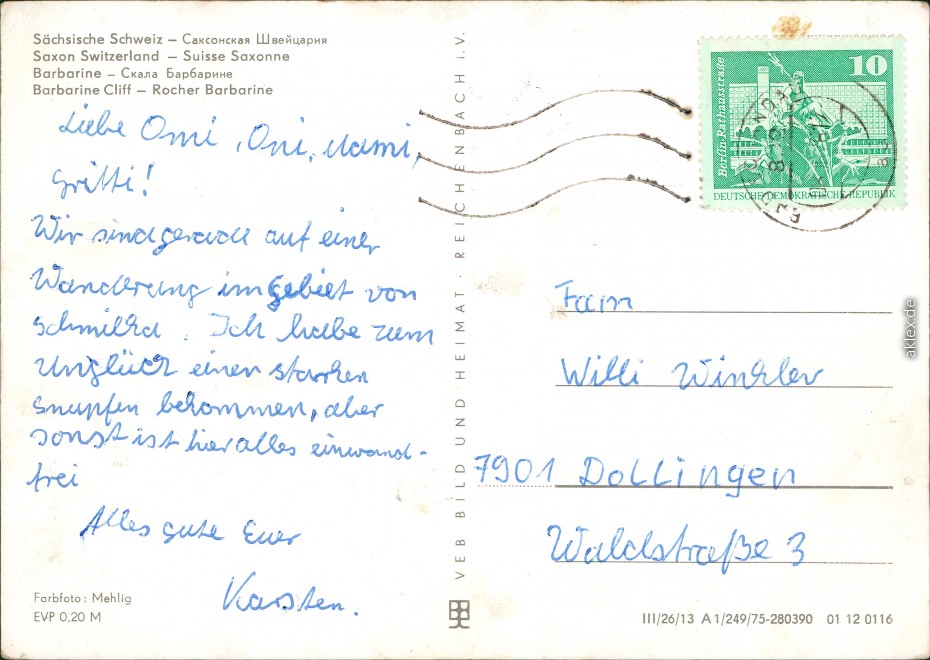 Sächsische Schweiz – Саксонская Швейцария
Saxon Switzerland – Suisse Saxonne
Barbarine – Скала Барбарине
Barbarine Cliff – Rocher Barbarine
Liebe Omi, Oni, Mami,
Gritti!
Wir sind gerade auf einer
Wanderung im gebiet von
Schmilka. Ich habe zum
Unglück einen starken
Snupfen bekommen, aber
sonst ist hier alles einwand-
frei
Alles gute Euer
Karsten.
Farbfoto: Mehlig
EVP 0,20 M
VEB BILD UND HEIMAT · REICHENBACH i. V.
10
Berlin-Rathausstraße
DEUTSCHE DEMOKRATISCHE REPUBLIK
Fam
Willi Winkler
7901 Dollingen
Waldstraße 3
III/26/13 A 1/249/75-280390 01 12 0116
aklex.de